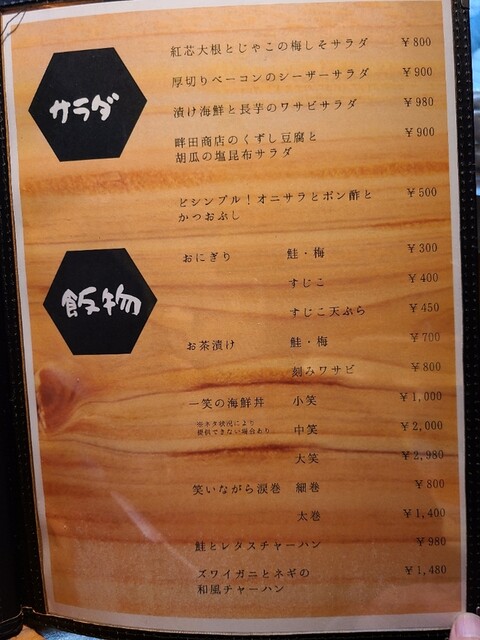 サラダ
紅芯大根とじゃこの梅しそサラダ ￥800
厚切りベーコンのシーザーサラダ ￥900
漬け海鮮と長芋のワサビサラダ ￥980
畔田商店のくずし豆腐と ￥900
胡瓜の塩昆布サラダ
どシンプル！オニサラとポン酢と ￥500
かつおぶし
飯物
おにぎり 鮭・梅 ￥300
すじこ ￥400
すじこ天ぷら ￥450
お茶漬け 鮭・梅 ￥700
刻みワサビ ￥800
一笑の海鮮丼 小笑 ￥1,000
※ネタ状況により
提供できない場合あり。
中笑 ￥2,000
大笑 ￥2,980
笑いながら涙巻 細巻 ￥800
太巻 ￥1,400
鮭とレタスチャーハン ￥980
ズワイガニとネギの ￥1,480
和風チャーハン